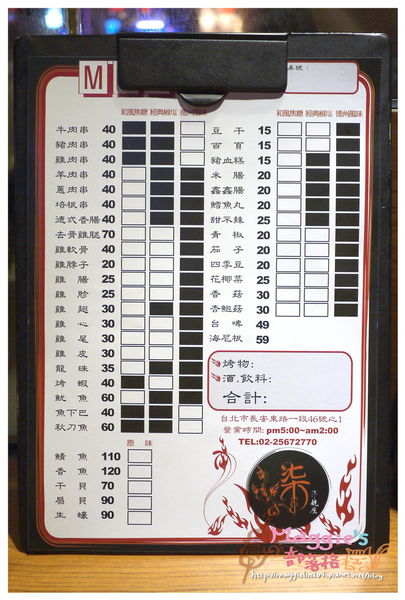 M
桌號：
和風焦糖 經典椒塩 德州風味
牛肉串 40
豬肉串 40
雞肉串 40
羊肉串 40
蔥肉串 40
培根串 40
德式香腸 40
去骨雞腿 70
雞軟骨 40
雞脖子 20
雞腸 25
雞胗 25
雞翅 30
雞心 30
雞尾 30
雞皮 30
龍珠 35
烤蝦 40
魷魚 60
魚下巴 40
秋刀魚 60
原味
鯖魚 110
香魚 120
干貝 70
扇貝 90
生蠔 90
和風焦糖 經典椒塩 德州風味
豆干 15
百頁 15
豬血糕 15
米腸 20
鑫鑫腸 20
鱈魚丸 20
甜不辣 25
青椒 20
茄子 20
四季豆 20
花椰菜 25
香菇 30
杏鮑菇 30
台啤 49
海尼根 59
烤物:
酒.飲料:
合計:
台北市長安東路一段46號之1
營業時間: pm5:00~am2:00
TEL:02-25672770
柒
Maggie's
部落格